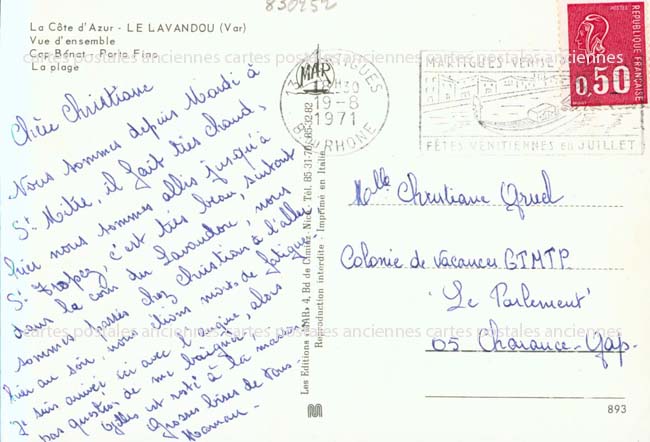 830252
La Côte d'Azur - LE LAVANDOU (Var)
Vue d'ensemble
Cap Bénat - Porto Fino
La plage
Chère Christiane
Nous sommes depuis Mardi à
St Mitre, il fait très chaud,
hier nous sommes allés jusqu'à
St Tropez, c'est très beau, surtout
dans le coin du Lavandou, nous
sommes passés chez Christian à l'aller
hier au soir, nous étions morts de fatigue.
Je suis arrivée avec l'angine, alors
pas question de me baigner,
Gilles est resté à la maison.
Grosses bises de tous.
Maman -
Les Editions «MAR» 4, Bd de Cimiez, Nice - Tél. 85-31-70 85-32-82
Reproduction interdite - Imprimé en Italie
MAR
13 MARTIGUES
18H30
19-8
1971
BCHES DU RHONE
MARTIGUES VENISE
FÊTES VÉNITIENNES en JUILLET
POSTES
0,50
RÉPUBLIQUE FRANÇAISE
Melle Christiane
Colonie de Vacances GTMTP
"Le Parlement"
05 Charance-Gap-
893
cartes postales anciennes cartes postales anciennes cartes postales anciennes
cartes postales anciennes cartes postales anciennes cartes postales anciennes